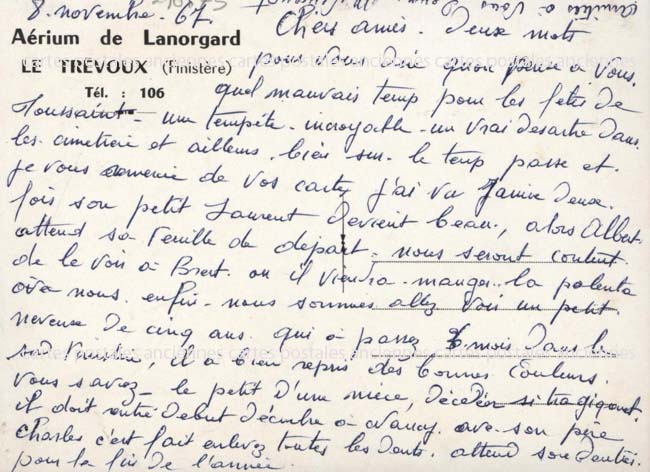 8. novembre. 67.
Aérium de Lanorgard
LE TRÉVOUX (Finistère)
Tél. : 106
Chers amis. Deux mots
pour vous dire qu'on pense a vous.
quel mauvais temp pour les fêtes de
Toussaint - une tempête - incroyable - un vrai desastre dans
les cimetiere et ailleurs. bien sur - le temp passe et
je vous remercie de vos cartes j'ai vu Janine deux
fois son petit Laurent devient beau, alors Albert
attend sa feuille de départ - nous seront content
de le voir a Brest. ou il viendra - manger - la polenta
avec nous. enfin - nous sommes allez voir un petit
neveuse de cinq ans. qui a passez 6 mois dans le
sud Finistère, il a bien repris des bonnes couleurs.
vous savez - le petit d'une niece, décéder si tragiquement.
il doit rentre debut décembre a Nancy. avec son père
Charles c'est fait enlevez toutes les dents. attend son dentier.
pour la fin de l'année.
cartes postales anciennes cartes postales anciennes